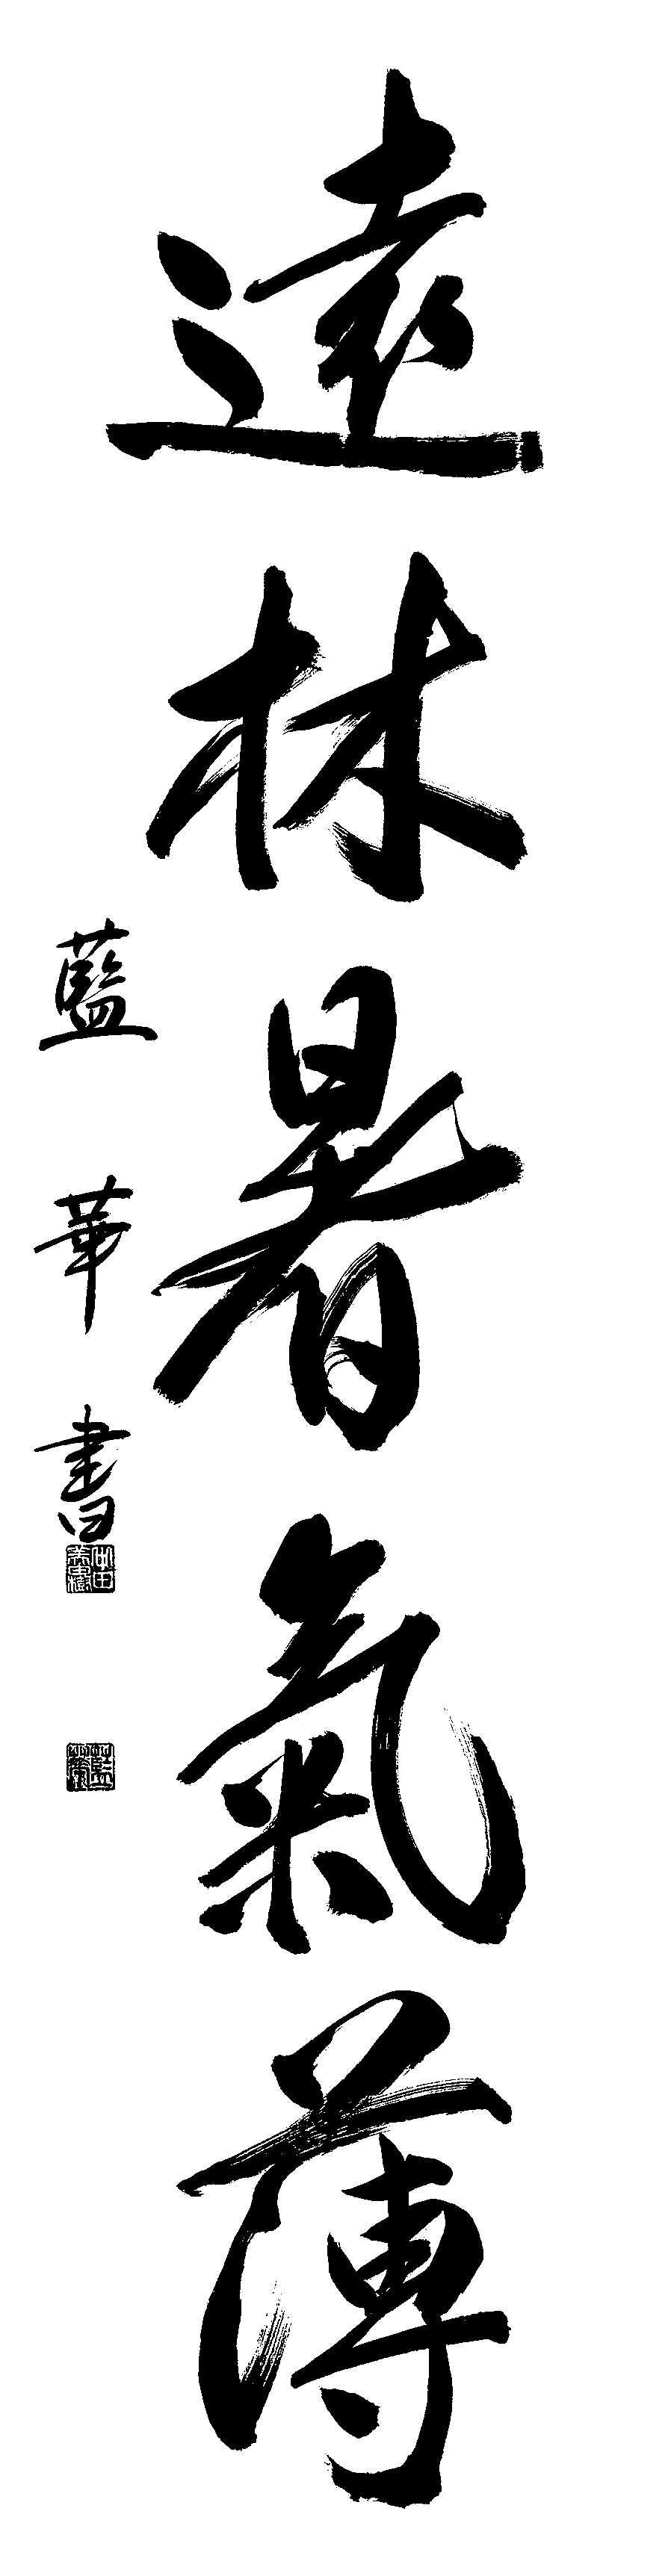 遠林暑氣薄
藍華書